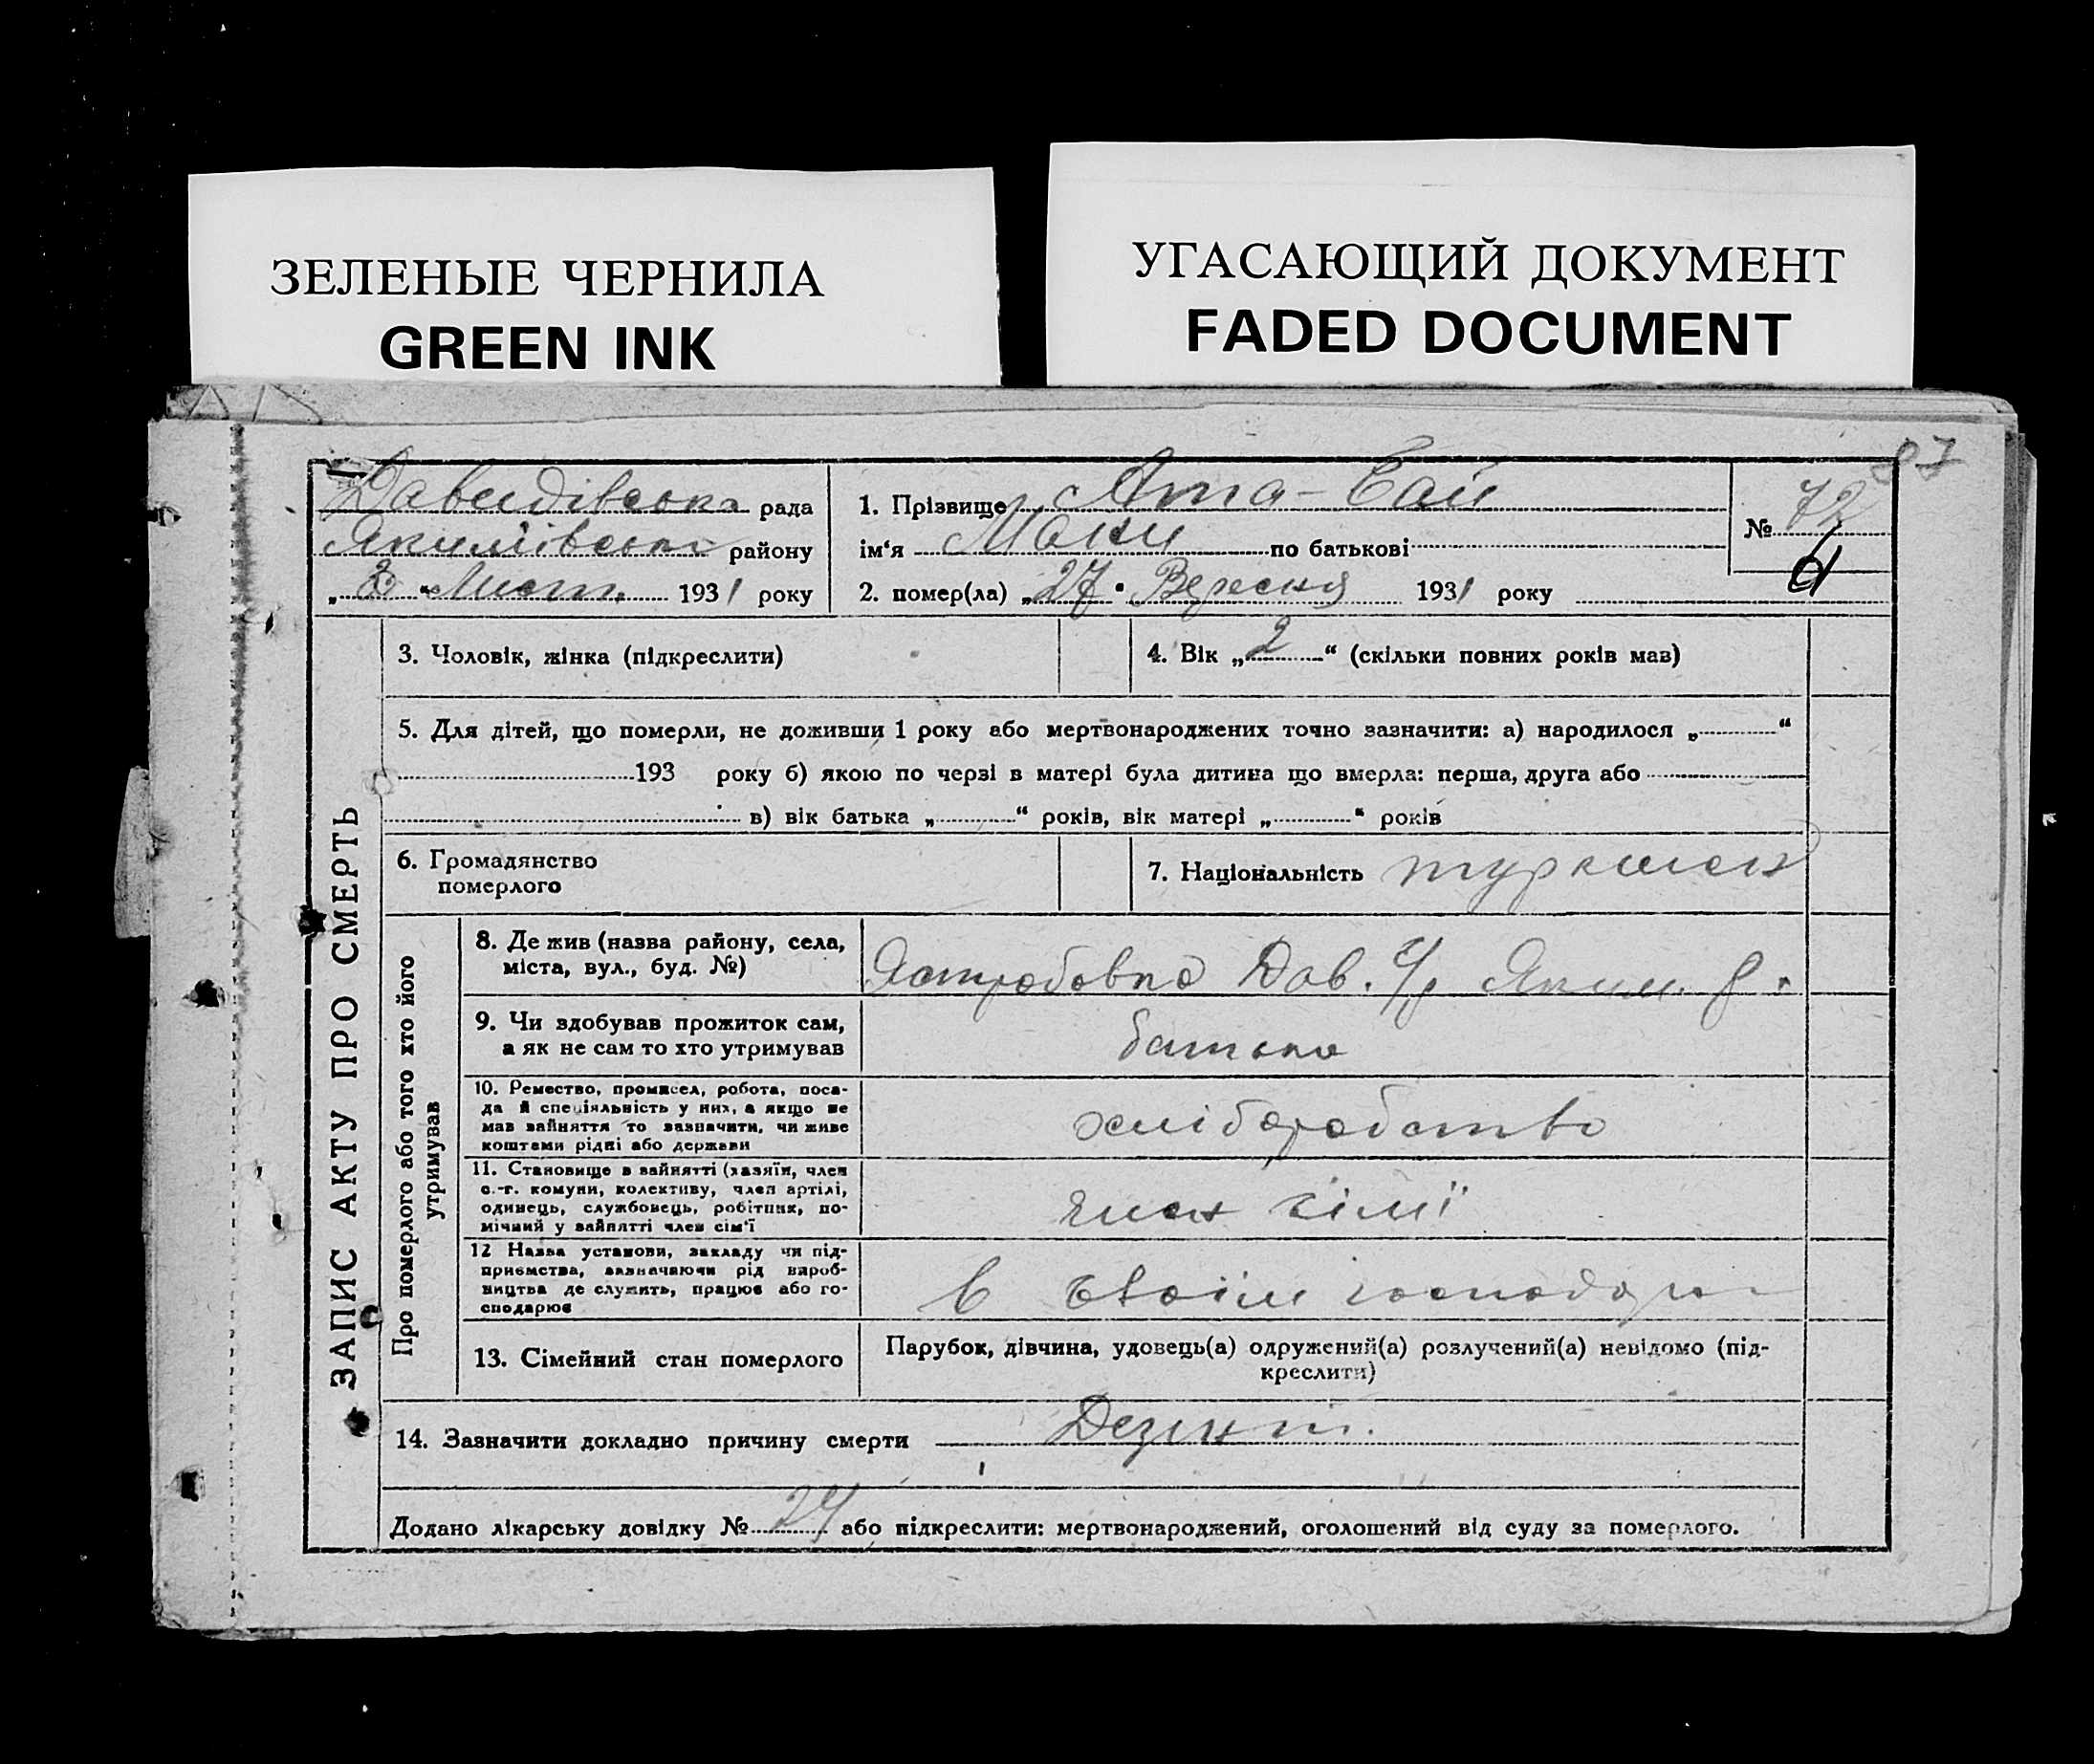 ЗЕЛЕНЫЕ ЧЕРНИЛА
GREEN INK
УГАСАЮЩИЙ ДОКУМЕНТ
FADED DOCUMENT
87
Давидівська рада
Якимівського району
„2“ Лист. 1931 року
1. Прізвище Ата-Бай
ім‘я по батькові
2. помер(ла) „27“ Вересня 1931 року
№ 72
ЗАПИС АКТУ ПРО СМЕРТЬ
3. Чоловік, жінка (підкреслити)
4. Вік „2“ (скільки повних років мав)
5. Для дітей, що померли, не доживши 1 року або мертвонароджених точно зазначити: а) народилося „ “
193 року б) якою по черзі в матері була дитина що вмерла: перша, друга або
в) вік батька „ “ років, вік матері „ “ років
6. Громадянство
померлого
7. Національність туркмен
Про померлого або того хто його
утримував
8. Де жив (назва району, села,
міста, вул., буд. №)
Дав. с/р Яким. р.
9. Чи здобував прожиток сам,
а як не сам то хто утримував
батько
10. Ремество, промисел, робота, поса-
да й спеціяльність у них, а якщо не
мав зайняття то зазначити, чи живе
коштами рідні або держави
хліборобство
11. Становище в зайнятті (хазяїн, член
с.-г. комуни, колективу, член артілі,
одинець, службовець, робітник, по-
мічний у зайнятті член сім‘ї
член сімї
12 Назва установи, закладу чи під-
приємства, зазначаючи рід вироб-
ництва де служить, працює або го-
сподарює
в своїм господар
13. Сімейний стан померлого
Парубок, дівчина, удовець(а) одружений(а) розлучений(а) невідомо (під-
креслити)
14. Зазначити докладно причину смерти Дезінт.
Додано лікарську довідку № 24 або підкреслити: мертвонароджений, оголошений від суду за померлого.